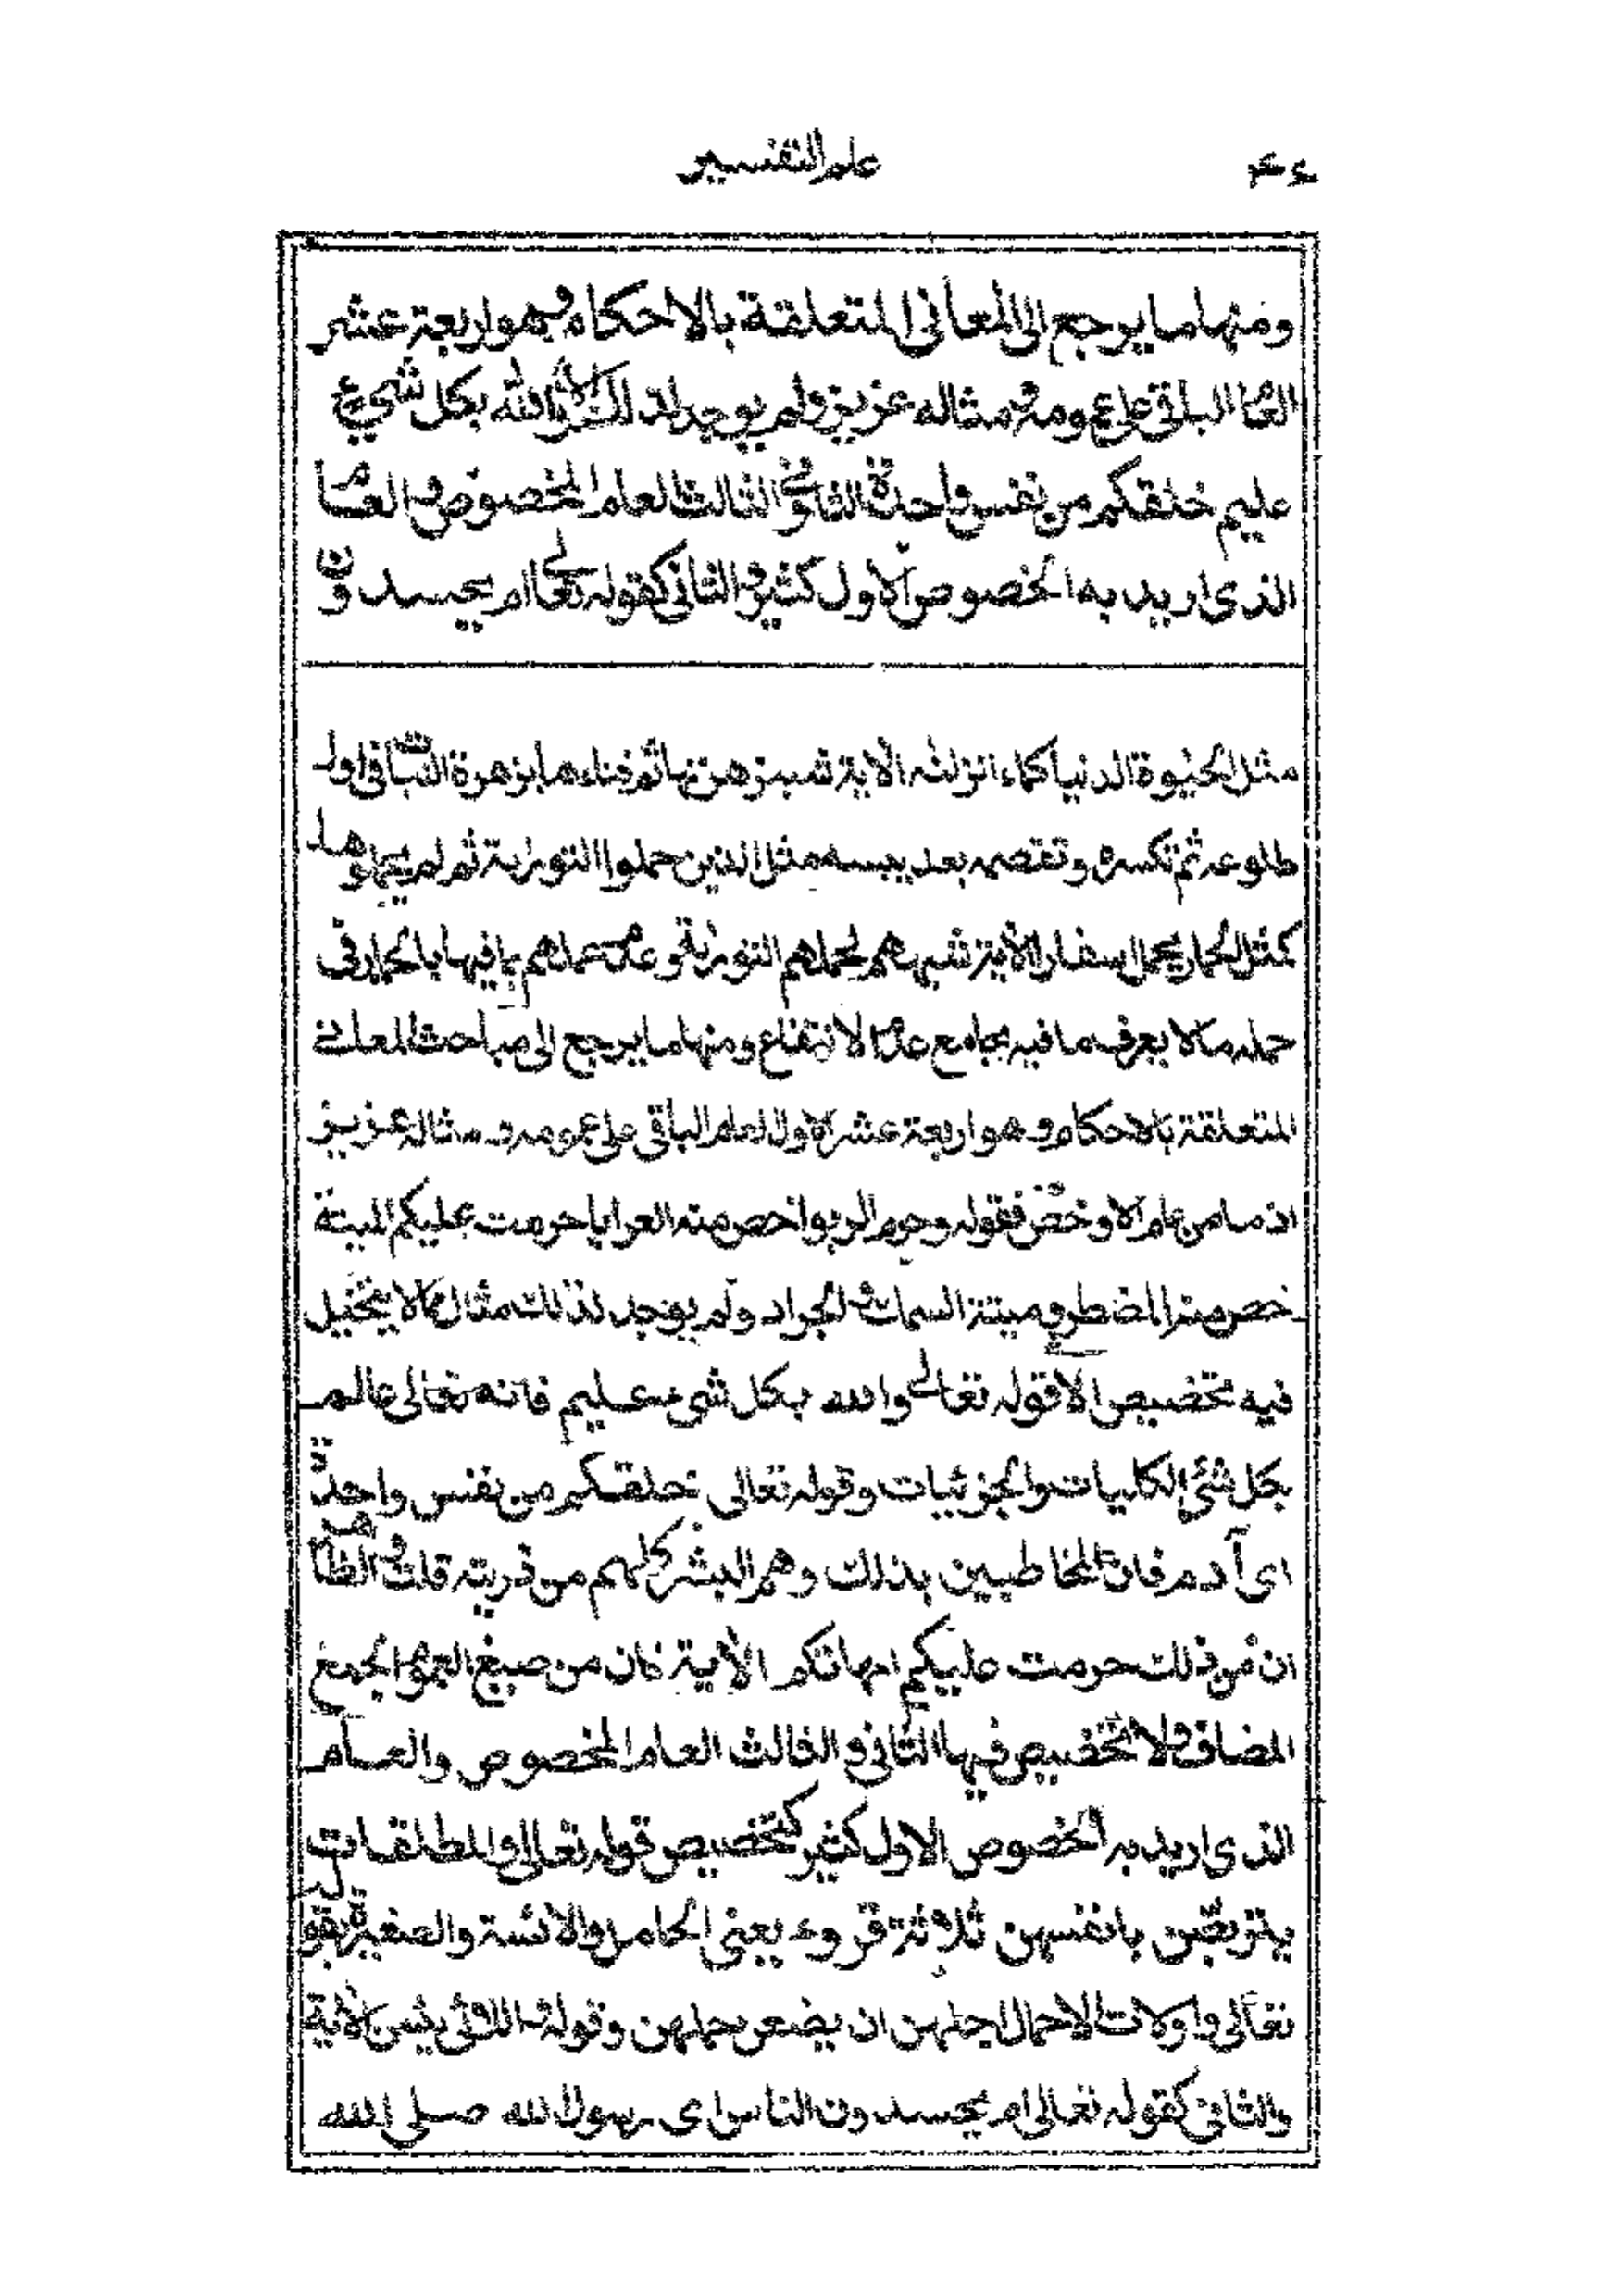 علم التفسير
٤٤
ومنها ما يرجع الى المعانى المتعلقة بالاحكام وهو اربعة عشر
العام الباقى على عمومه ومثاله عزيز ولم يوجد لذلك الا والله بكل شيء
عليم خلقكم من نفس واحدة الثانى والثالث العام المخصوص والعام
الذى اريد به الخصوص الاول كثير والثانى كقوله تعالى ام يحسدون
مثل الحيوة الدنيا كماء انزلنه الاية شبه زهرتها ثم فناءها بزهرة النبات فى اول
طلوعه ثم تكسره وتقصمه بعد يبسه مثل الذين حملوا التورية ثم لم يحملوها
كمثل الحمار يحمل اسفارا الاية شبههم لحملهم التورية وعدم عملهم بما فيها بالحمار فى
حمله ما لا يعرف ما فيه بجامع عدم الانتفاع ومنها ما يرجع الى مباحث المعانى
المتعلقة بالاحكام وهو اربعة عشر الاول العام الباقى على عمومه ومثاله عزيز
اذ ما من عام الا وخص فقوله وحرم الربوا خص منه العرايا حرمت عليكم الميتة
خص منها المضطر وميتة السمك والجراد ولم يوجد لذلك مثال مما لا يتخيل
فيه تخصيص الا قوله تعالى والله بكل شيء عليم فانه تعالى عالم
بكل شئ الكليات والجزئيات وقوله تعالى خلقكم من نفس واحدة
اى آدم فان المخاطبين بذلك وهم البشر كلهم من ذريته قلت والظاهر
ان من ذلك حرمت عليكم امهاتكم الاية فان من صيغ العموم الجمع
المضاف ولا تخصيص فيها الثانى والثالث العام المخصوص والعام
الذى اريد به الخصوص الاول كثير كتخصيص قوله تعالى والمطلقات
يتربصن بانفسهن ثلاثة قروء يعنى الحامل والائسة والصغيرة بقوله
تعالى واولات الاحمال اجلهن ان يضعن حملهن وقوله واللائى يئسن الاية
والثانى كقوله تعالى ام يحسدون الناس اى رسول الله صلى الله